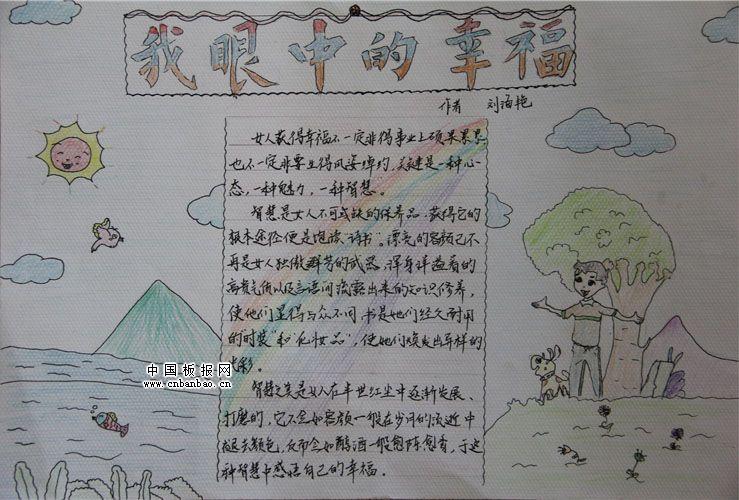 我眼中的幸福
作者 刘海艳
女人获得幸福不一定非得事业上硕果累累
也不一定非要生得风姿绰约，关键是一种心
态，一种魅力，一种智慧。
智慧是女人不可或缺的保养品，获得它的
根本途径便是饱读“诗书”。漂亮的容颜已不
再是女人独傲群芳的武器，浑身洋溢着的
高贵气质以及言语间流露出来的知识修养，
使他们显得与众不同，书是她们经久耐用
的“时装”和“化妆品”，使她们焕发出异样的
光彩。
智慧之美是女人在半世红尘中逐渐发展、
打磨的，它不会如容颜一般在岁月的流逝中
褪去颜色，反而会如醇酒一般愈陈愈香，于这
种智慧中感悟自己的幸福。
中国板报网
www.cnbanbao.cn